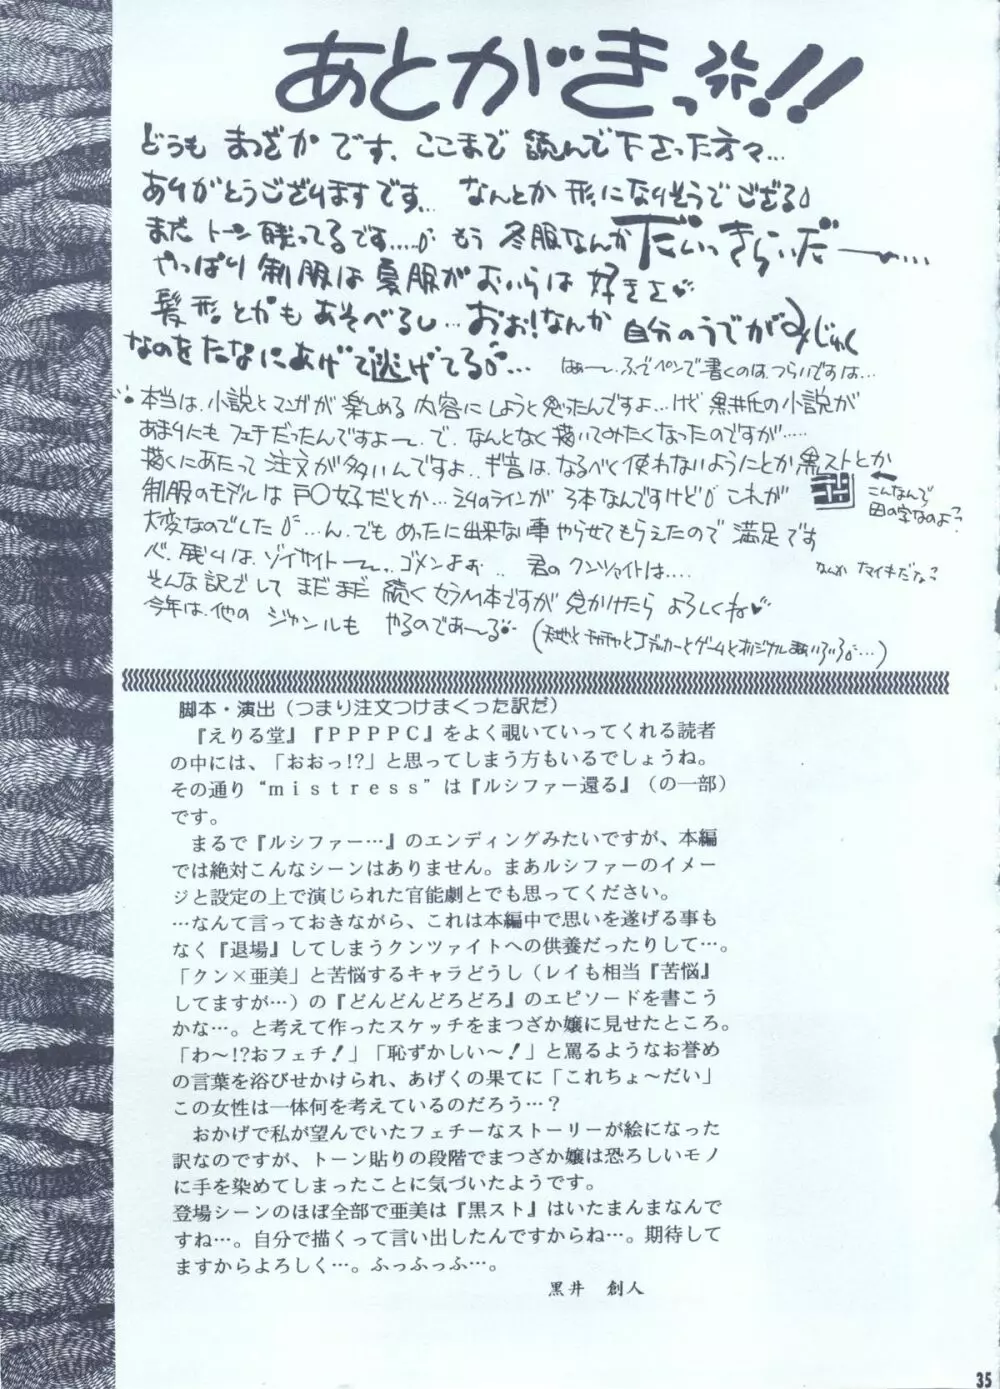 あとがきっ!!
どうも まつざか です、ここまで 読んで下さった方々…
ありがとうございますです… なんとか 形になりそうでござる
まだ トーン 残ってるです…… もう 冬服なんか だいっきらいだー……
やっぱり 制服は 夏服が おいらは 好きさ
髪形とかも あそべるし… おお!なんか 自分のうでがみじゅく
なのをたなにあげて逃げてる…
はぁー、ふでペンで書くのは、つらいですは…
本当は、小説とマンガが 楽しめる 内容にしようと思ったんですよ…けど 黒井氏の小説が
あまりにも フェチだったんですよー、で、なんとなく描いてみたくなったのですが……
描くにあたって 注文が多いんですよ、ギ音は、なるべく使わないようにとか 黒ストとか
制服のモデルは 戸○女子だとか… えりのラインが 3本なんですけど これが
こんなんで
田の字なのよ
大変なのでした …ん、でも めったに出来ない事 やらせてもらえたので 満足です
心、残りは、ゾイサイトー、ゴメンよぉ… 君の クンツァイトは…
なんか ナマイキだな
そんな訳でして まだまだ 続く セラムン本ですが 見かけたら よろしくね
今年は、他の ジャンルも やるのであーる
脚本・演出(つまり注文つけまくった訳だ)
『えりる堂』『PPPPC』をよく覗いていってくれる読者
の中には、「おおっ!?」と思ってしまう方もいるでしょうね。
その通り“mistress”は『ルシファー還る』(の一部)
です。
まるで『ルシファー…』のエンディングみたいですが、本編
では絶対こんなシーンはありません。まあルシファーのイメー
ジと設定の上で演じられた官能劇とでも思ってください。
…なんて言っておきながら、これは本編中で思いを遂げる事も
なく『退場』してしまうクンツァイトへの供養だったりして…。
「クン×亜美」と苦悩するキャラどうし(レイも相当『苦悩』
してますが…)の『どんどんどろどろ』のエピソードを書こう
かな…。と考えて作ったスケッチをまつざか嬢に見せたところ。
「わ〜!?おフェチ!」「恥ずかしい〜!」と罵るようなお誉め
の言葉を浴びせかけられ、あげくの果てに「これちょ〜だい」
この女性は一体何を考えているのだろう…?
おかげで私が望んでいたフェチーなストーリーが絵になった
訳なのですが、トーン貼りの段階でまつざか嬢は恐ろしいモノ
に手を染めてしまったことに気づいたようです。
登場シーンのほぼ全部で亜美は『黒スト』はいたまんまなんで
すね…。自分で描くって言い出したんですからね…。期待して
ますからよろしく…。ふっふっふ…。
黒井　創人
35